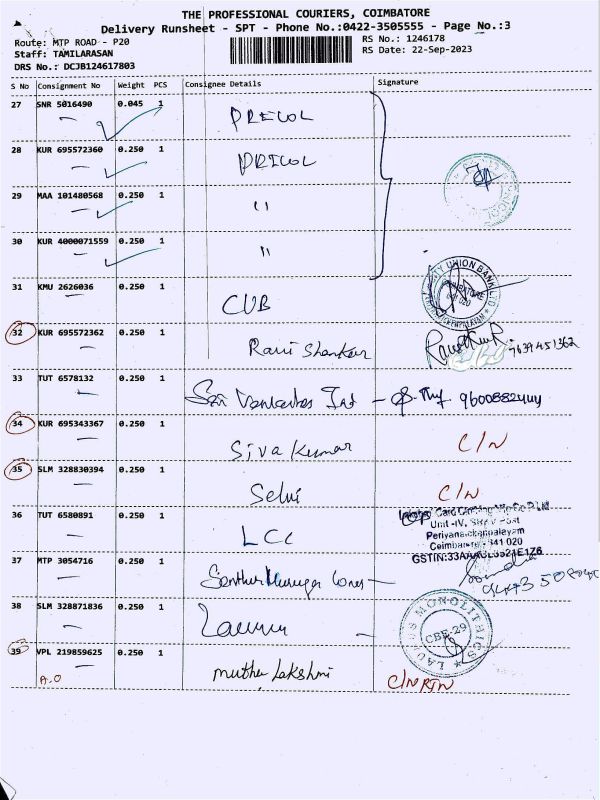 THE PROFESSIONAL COURIERS, COIMBATORE
Delivery Runsheet - SPT - Phone No.:0422-3505555 - Page No.:3
Route: MTP ROAD - P20
RS No.: 1246178
Staff: TAMILARASAN
RS Date: 22-Sep-2023
DRS No.: DCJB124617803
S No Consignment No Weight PCS Consignee Details Signature
27 SNR 5016490 0.045 1
PRECOL
28 KUR 695572360 0.250 1
PRICOL
29 MAA 101480568 0.250 1
"
30 KUR 4000071559 0.250 1
"
31 KMU 2626036 0.250 1
CUB
CITY UNION BANK LTD
32 KUR 695572362 0.250 1
Ravi Shankar
33 TUT 6578132 0.250 1
Sri Int - 9600882444
34 KUR 695343367 0.250 1
Siva Kumar C/N
35 SLM 328830394 0.250 1
Selvi C/N
36 TUT 6580891 0.250 1
LCC
Unit -IV,
Periyanaickenpalayam
Coimbatore - 641 020
37 MTP 3054716 0.250 1
38 SLM 328871836 0.250 1
LAURUS MONOLITHICS
CBE-29
39 VPL 219859625 0.250 1
A.O Muthu Lakshmi C/N RTN